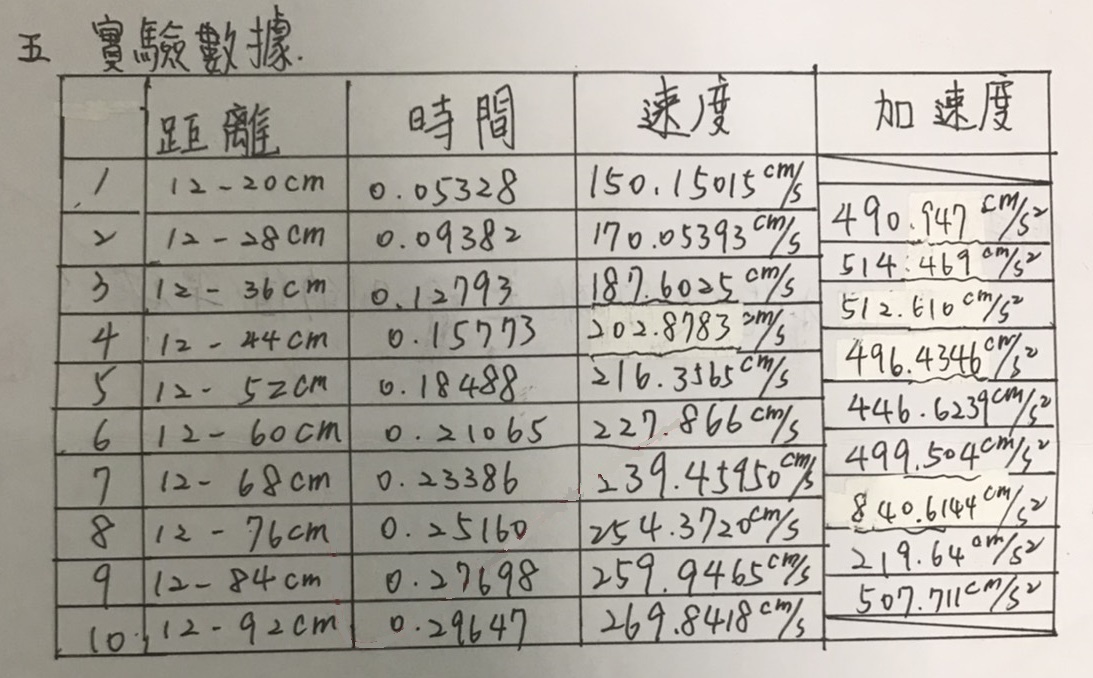 五 實驗數據.
距離 時間 速度 加速度
1 12-20cm 0.05328 150.15015cm/s
490.947cm/s²
2 12-28cm 0.09382 170.05393cm/s
514.469cm/s²
3 12-36cm 0.12793 187.6025cm/s
512.610cm/s²
4 12-44cm 0.15773 202.8783cm/s
496.4346cm/s²
5 12-52cm 0.18488 216.3565cm/s
446.6239cm/s²
6 12-60cm 0.21065 227.866cm/s
499.504cm/s²
7 12-68cm 0.23386 239.45950cm/s
840.6144cm/s²
8 12-76cm 0.25160 254.3720cm/s
219.64cm/s²
9 12-84cm 0.27698 259.9465cm/s
507.711cm/s²
10 12-92cm 0.29647 269.8418cm/s